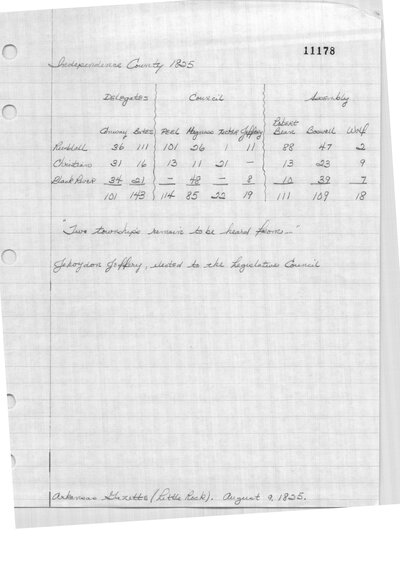 11178
Independence County 1825
Delegates Council Assembly
Conway Bates Peel Magness Tucker Jeffery Robert Bean Boswell Wolf
36 111 101 26 1 11 88 47 2
Christians 31 16 13 11 21 — 13 23 9
Black River 34 21 — 48 — 8 10 39 7
101 143 114 85 22 19 111 109 18
"Two townships remain to be heard from—"
Jehoydon Jeffery, elected to the Legislative Council
Arkansas Gazette (Little Rock). August 9, 1825.